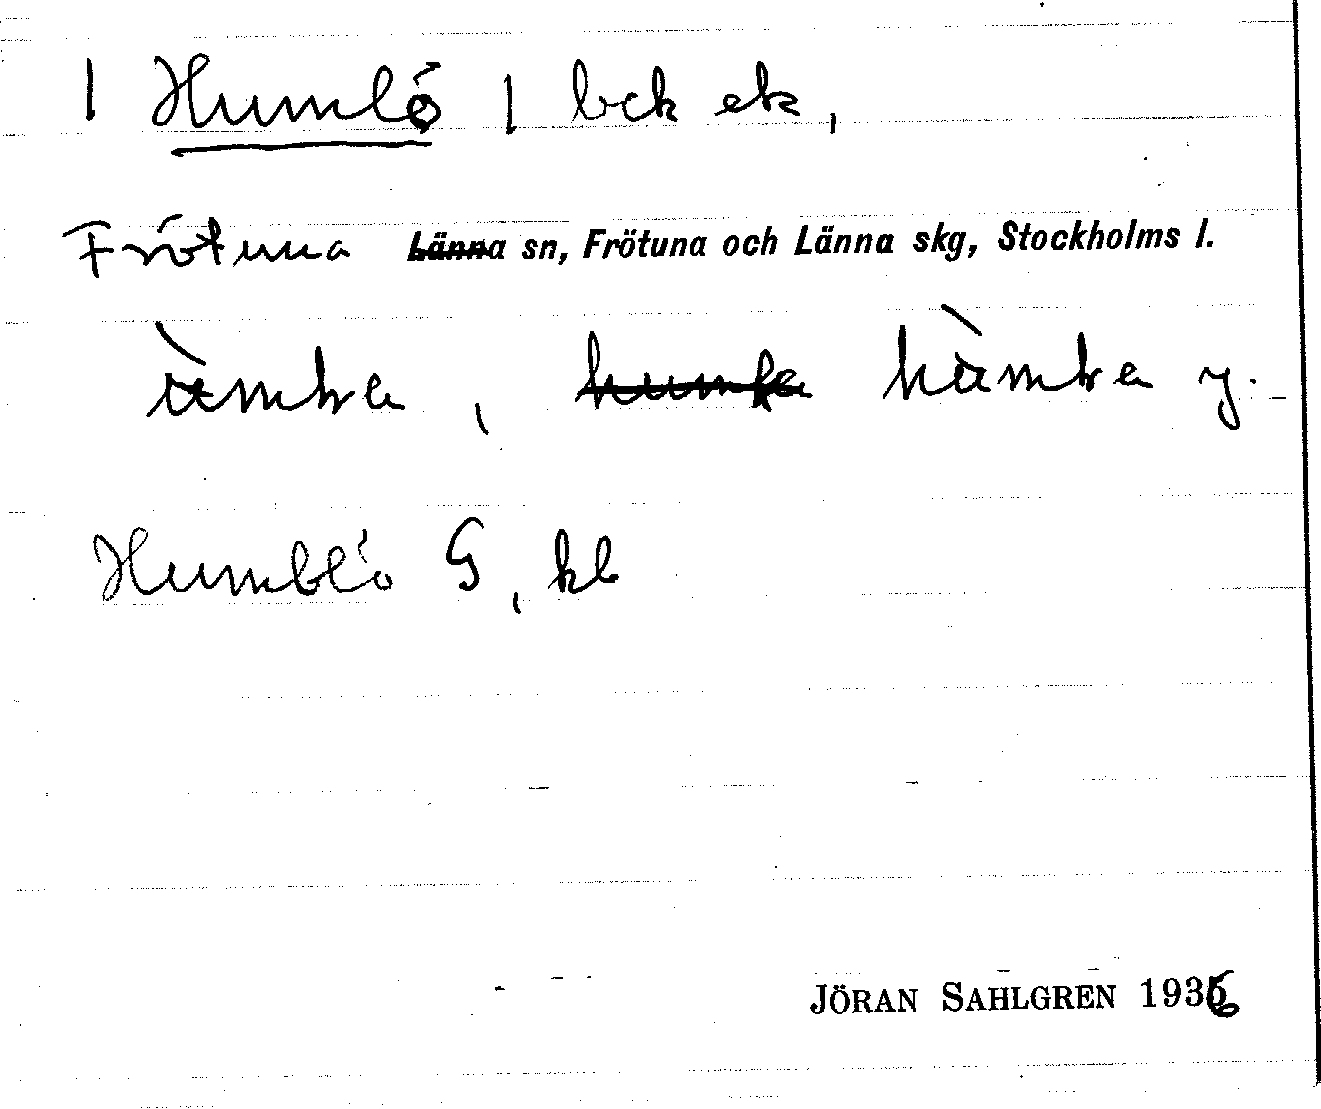 | Humlö | bck ek,
Frötuna Länna sn, Frötuna och Länna skg, Stockholms l.
hùmla y.
Humblö G, kb
JÖRAN SAHLGREN 1936